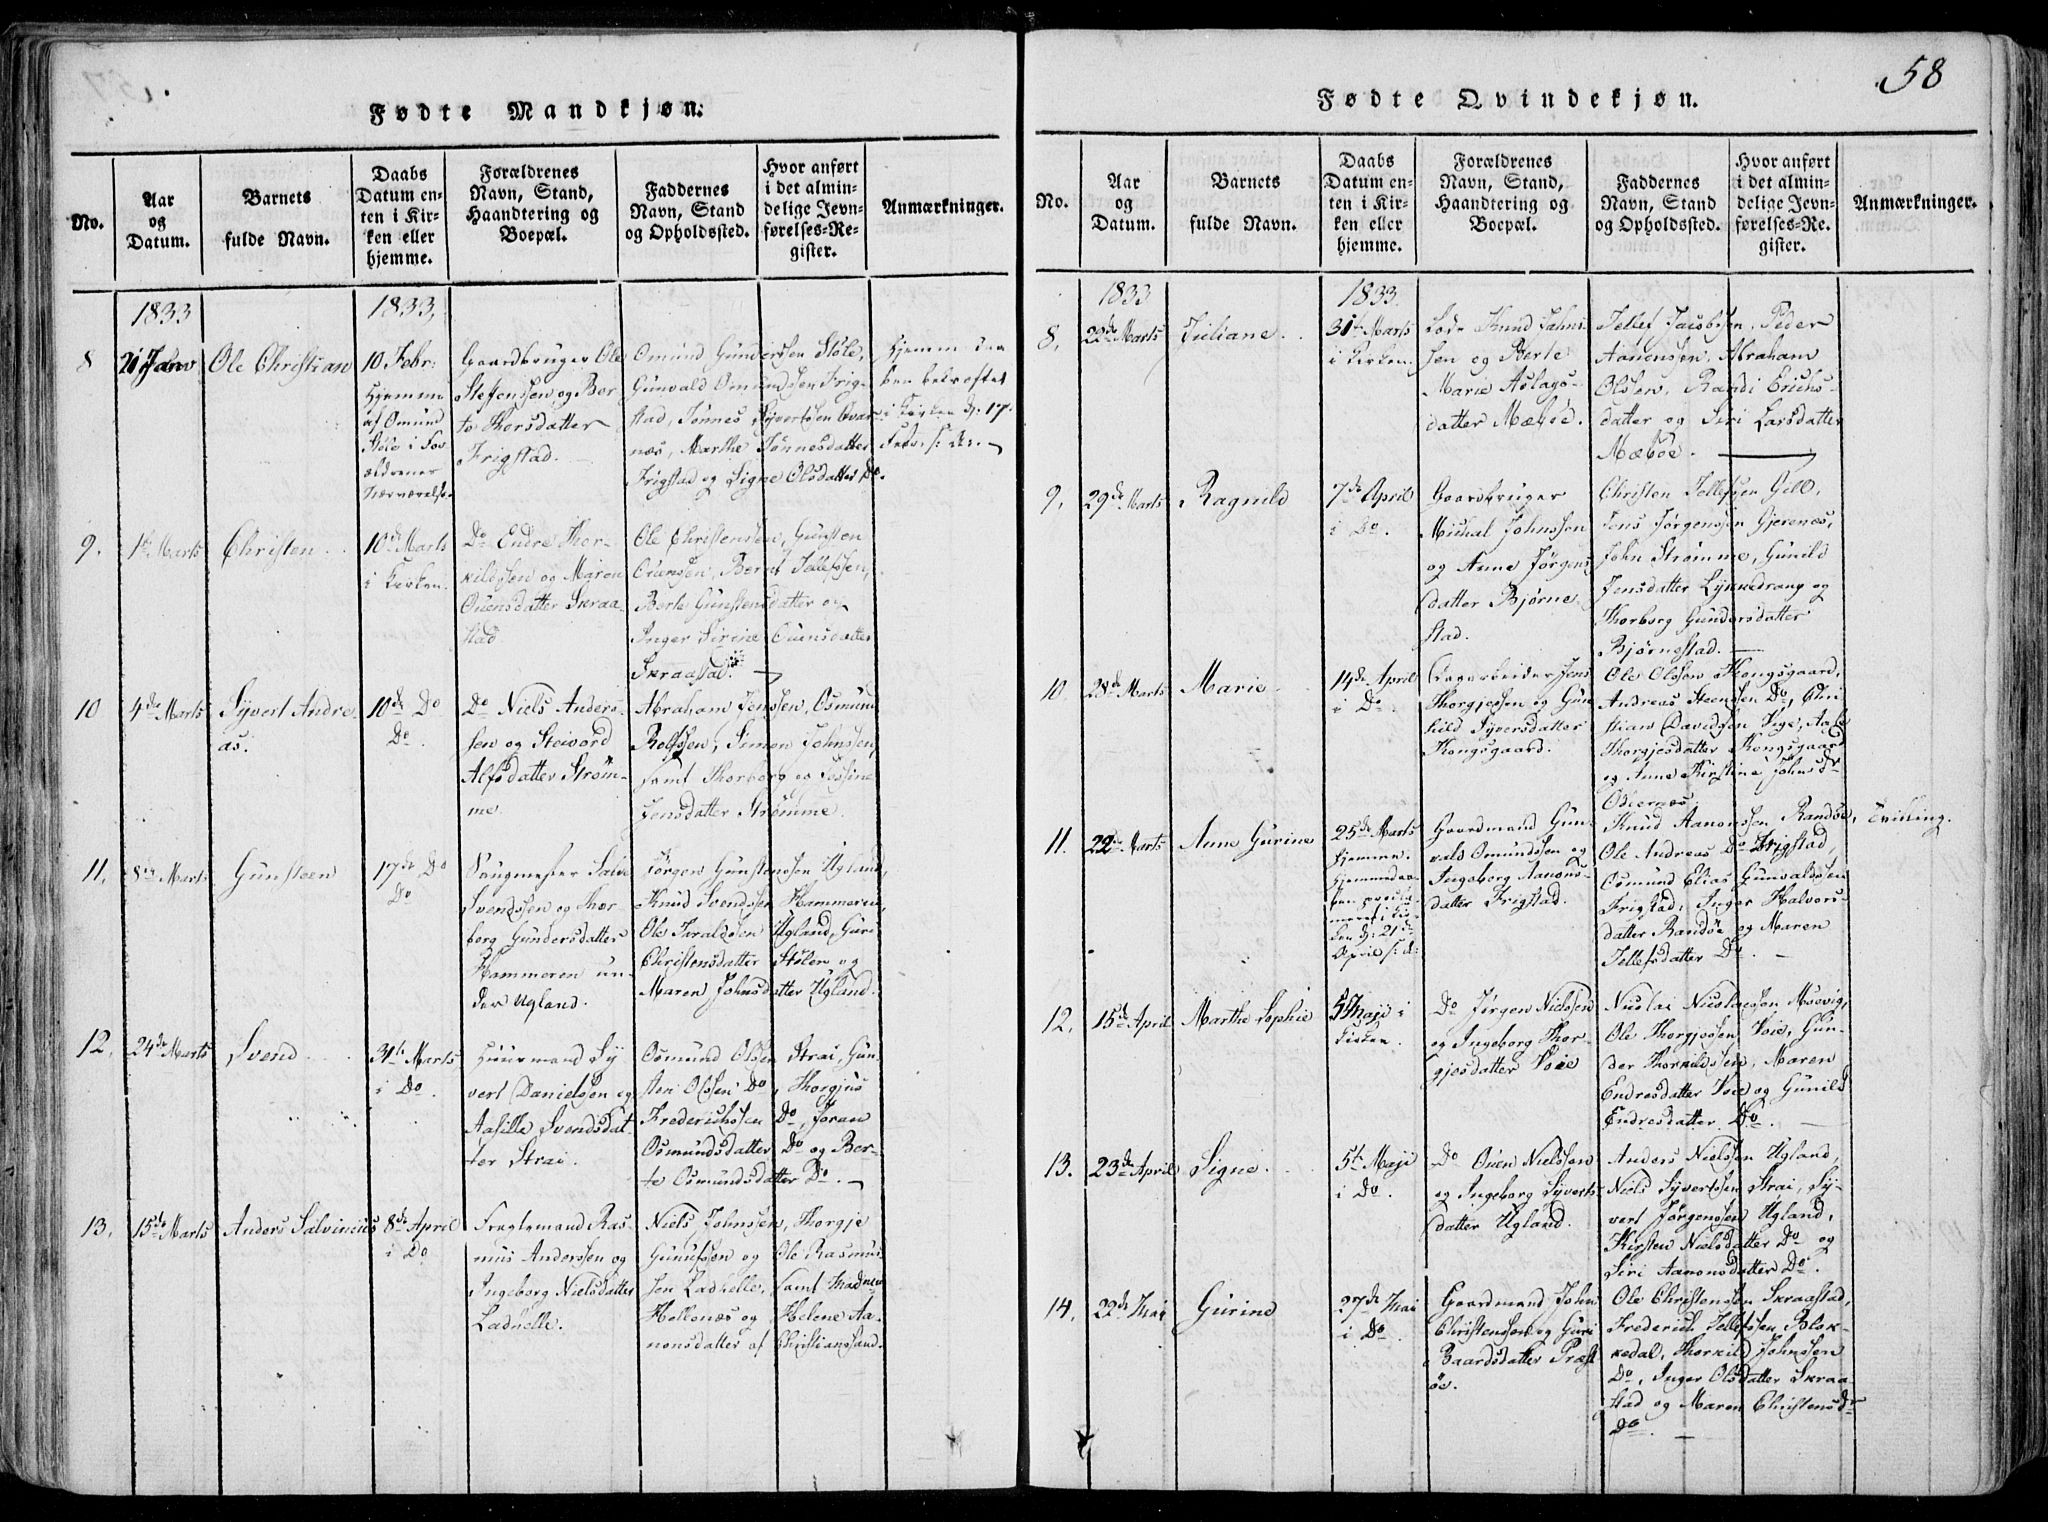 58
Fødte Mandkjøn.
No.
Aar
og
Datum.
Barnets
fulde Navn.
Daabs
Datum en-
ten i Kir-
ken eller
hjemme.
Forældrenes
Navn, Stand,
Haandtering og
Boepæl.
Faddernes
Navn, Stand
og Opholdssted.
Hvor anført
i det almin-
delige Jevn-
førelses-Re-
gister.
Anmærkninger.
1833
1833,
8
21 Janv
Ole Christian
10. Febr:
Hjemme
af Omund
Støle i For
ældrenes
Nærværelse.
Gaardbruger Ole
Stefensen og Ber-
te Thorsdatter
Frigstad.
Omund Gunderssen Støle,
Gunvald Omundssen Frig-
stad, Tønnes Syvertsen Qvar-
næs, Marthe Tønnesdatter
Frigstad og Signe Olsdatter Do.
Hjemmedaa-
ben bekræftet
i Kirken d. 17.
Febr. s: A:
9.
1ste Marts
Christen
10de Marts
i Kirken.
Do Endre Thor-
kildssen og Maren
Ouensdatter Skraa-
stad
Ole Christenssen, Gunsten
Ouensen, Bernt Tellefssen,
Berte Gunstensdatter og
Inger Sirine Ouensdatter
Skraastad.
10
4de Marts
Syvert Andre-
as.
10de Do
Do.
Do Niels Anders-
sen og Steivord
Alfsdatter Strøm-
me.
Abraham Jenssen, Osmund
Rolfssen, Simon Johnssen,
samt Thorborg og Gessine
Jensdatter Strømme.
11.
8de Marts
Gunsteen
17de Do
Do
Saugmester Salve
Svendssen og Thor-
borg Gundersdatter
Hammeren un-
der Ugland.
Jørgen Gunstenssen Ugland,
Knud Svendssen Hammeren,
Ole Taraldssen Ugland, Guri
Christensdatter Stølen og
Maren Johnsdatter Ugland.
12.
24de Marts
Svend
31te Marts
i Do.
Huusmand Sy
vert Danielssen og
Aasille Svendsdat
ter Strai.
Osmund Olsen Strai, Gun-
sten Olssen Do, Thorgjus
Frederichssen Do, Joran
Osmundsdatter Do og Ber-
te Osmundsdatter Do.
13.
15de Marts
Anders Salvinius
8de April
i Do
Fragtemand Ras-
mus Anderssen og
Ingeborg Nielsdatter
Ladhelle.
Niels Johnssen, Thorgje
Gunufssen og Ole Rasmus-
sen Ladhelle, samt Madme
Hellenæs og Helene Aa-
nonsdatter af Christianssand.
Fødte Qvindekjøn.
No.
Aar
og
Datum.
Barnets
fulde Navn.
Daabs
Datum en-
ten i Kir-
ken eller
hjemme.
Forældrenes
Navn, Stand,
Haandtering og
Boepæl.
Faddernes
Navn, Stand
og Opholdssted.
Hvor anført
i det almin-
delige Jevn-
førelses-Re-
gister.
Anmærkninger.
1833
1833.
8.
22de Marts
Juliane
31te Marts
i Kirken.
Lods Knud Johns-
sen og Berte
Marie Aslags-
datter Mæbøe.
Tellef Jacobssen, Peder
Aanenssen, Abraham
Olsen, Randi Erichs-
datter og Siri Larsdatter
Mæbøe.
9.
29de Marts
Ragnild
7de April
i Do.
Gaardbruger
Michal Johnssen
og Anne Jørgens
datter Bjørne-
stad.
Christen Tellefssen Gill,
Jens Jørgenssen Gjerenes,
John Strømme, Gunild
Jensdatter Lykkedrang og
Thorborg Gundersdatter
Bjørnestad.
10.
28de Marts
Marie
14de April
i Do.
Dagarbeider Jens
Thorgjessen og Gun-
hild Syversdatter
Kongsgaard.
Ole Olssen Kongsgaard,
Andreas Steenssen Do, Chri
stian Davidssen Vige, Aase
Thorgjesdatter Kongsgaard
og Anne Kirstine Johnsdr
Odernæs.
11.
22de Marts
Anne Gurine
25de Marts
hjemme.
Hjemmedaa-
ben
i Kir
ken d: 21de
April s: A:
Gaardmand Gun-
vald Omundssen og
Ingeborg Aanons-
datter Frigstad.
Knud Aanonssen Randøe,
Ole Andreas Do Frigstad,
Osmund Elias Gunvaldssen
Frigstad, Inger Halvors-
datter Randøe og Maren
Tellefsdatter Do.
Tvilling.
12.
15de April
Marthe Sophie
5 Maji i
Kirken.
Do Jørgen Nielssen
og Ingeborg Thor-
gjesdatter Voie
Nicolai Nicolaissen Mosvig,
Ole Thorgjessen Voie, Gun-
der Thorkildssen, Maren
Endresdatter Voie og Gunild
Endresdatter Do.
13.
23de April
Signe
5te Maji
i Do.
Do Ouen Nielssen
og Ingeborg Syverts-
datter Ugland.
Anders Nielssen Ugland,
Niels Syvertssen Strai, Sy-
vert Jørgenssen Ugland,
Kirsten Nielsdatter Do og
Siri Aanonsdatter Do.
14.
22de Mai
Gurine
27de Mai
i Do.
Gaardmand John
Christenssen og Guri
Baardsdatter Præst-
øe.
Ole Christenssen Skraastad,
Frederich Tellefssen Blok-
kedal, Thorkild Johnssen
Do, Inger Olsdatter Skraa-
stad og Maren Christensdr
Do.